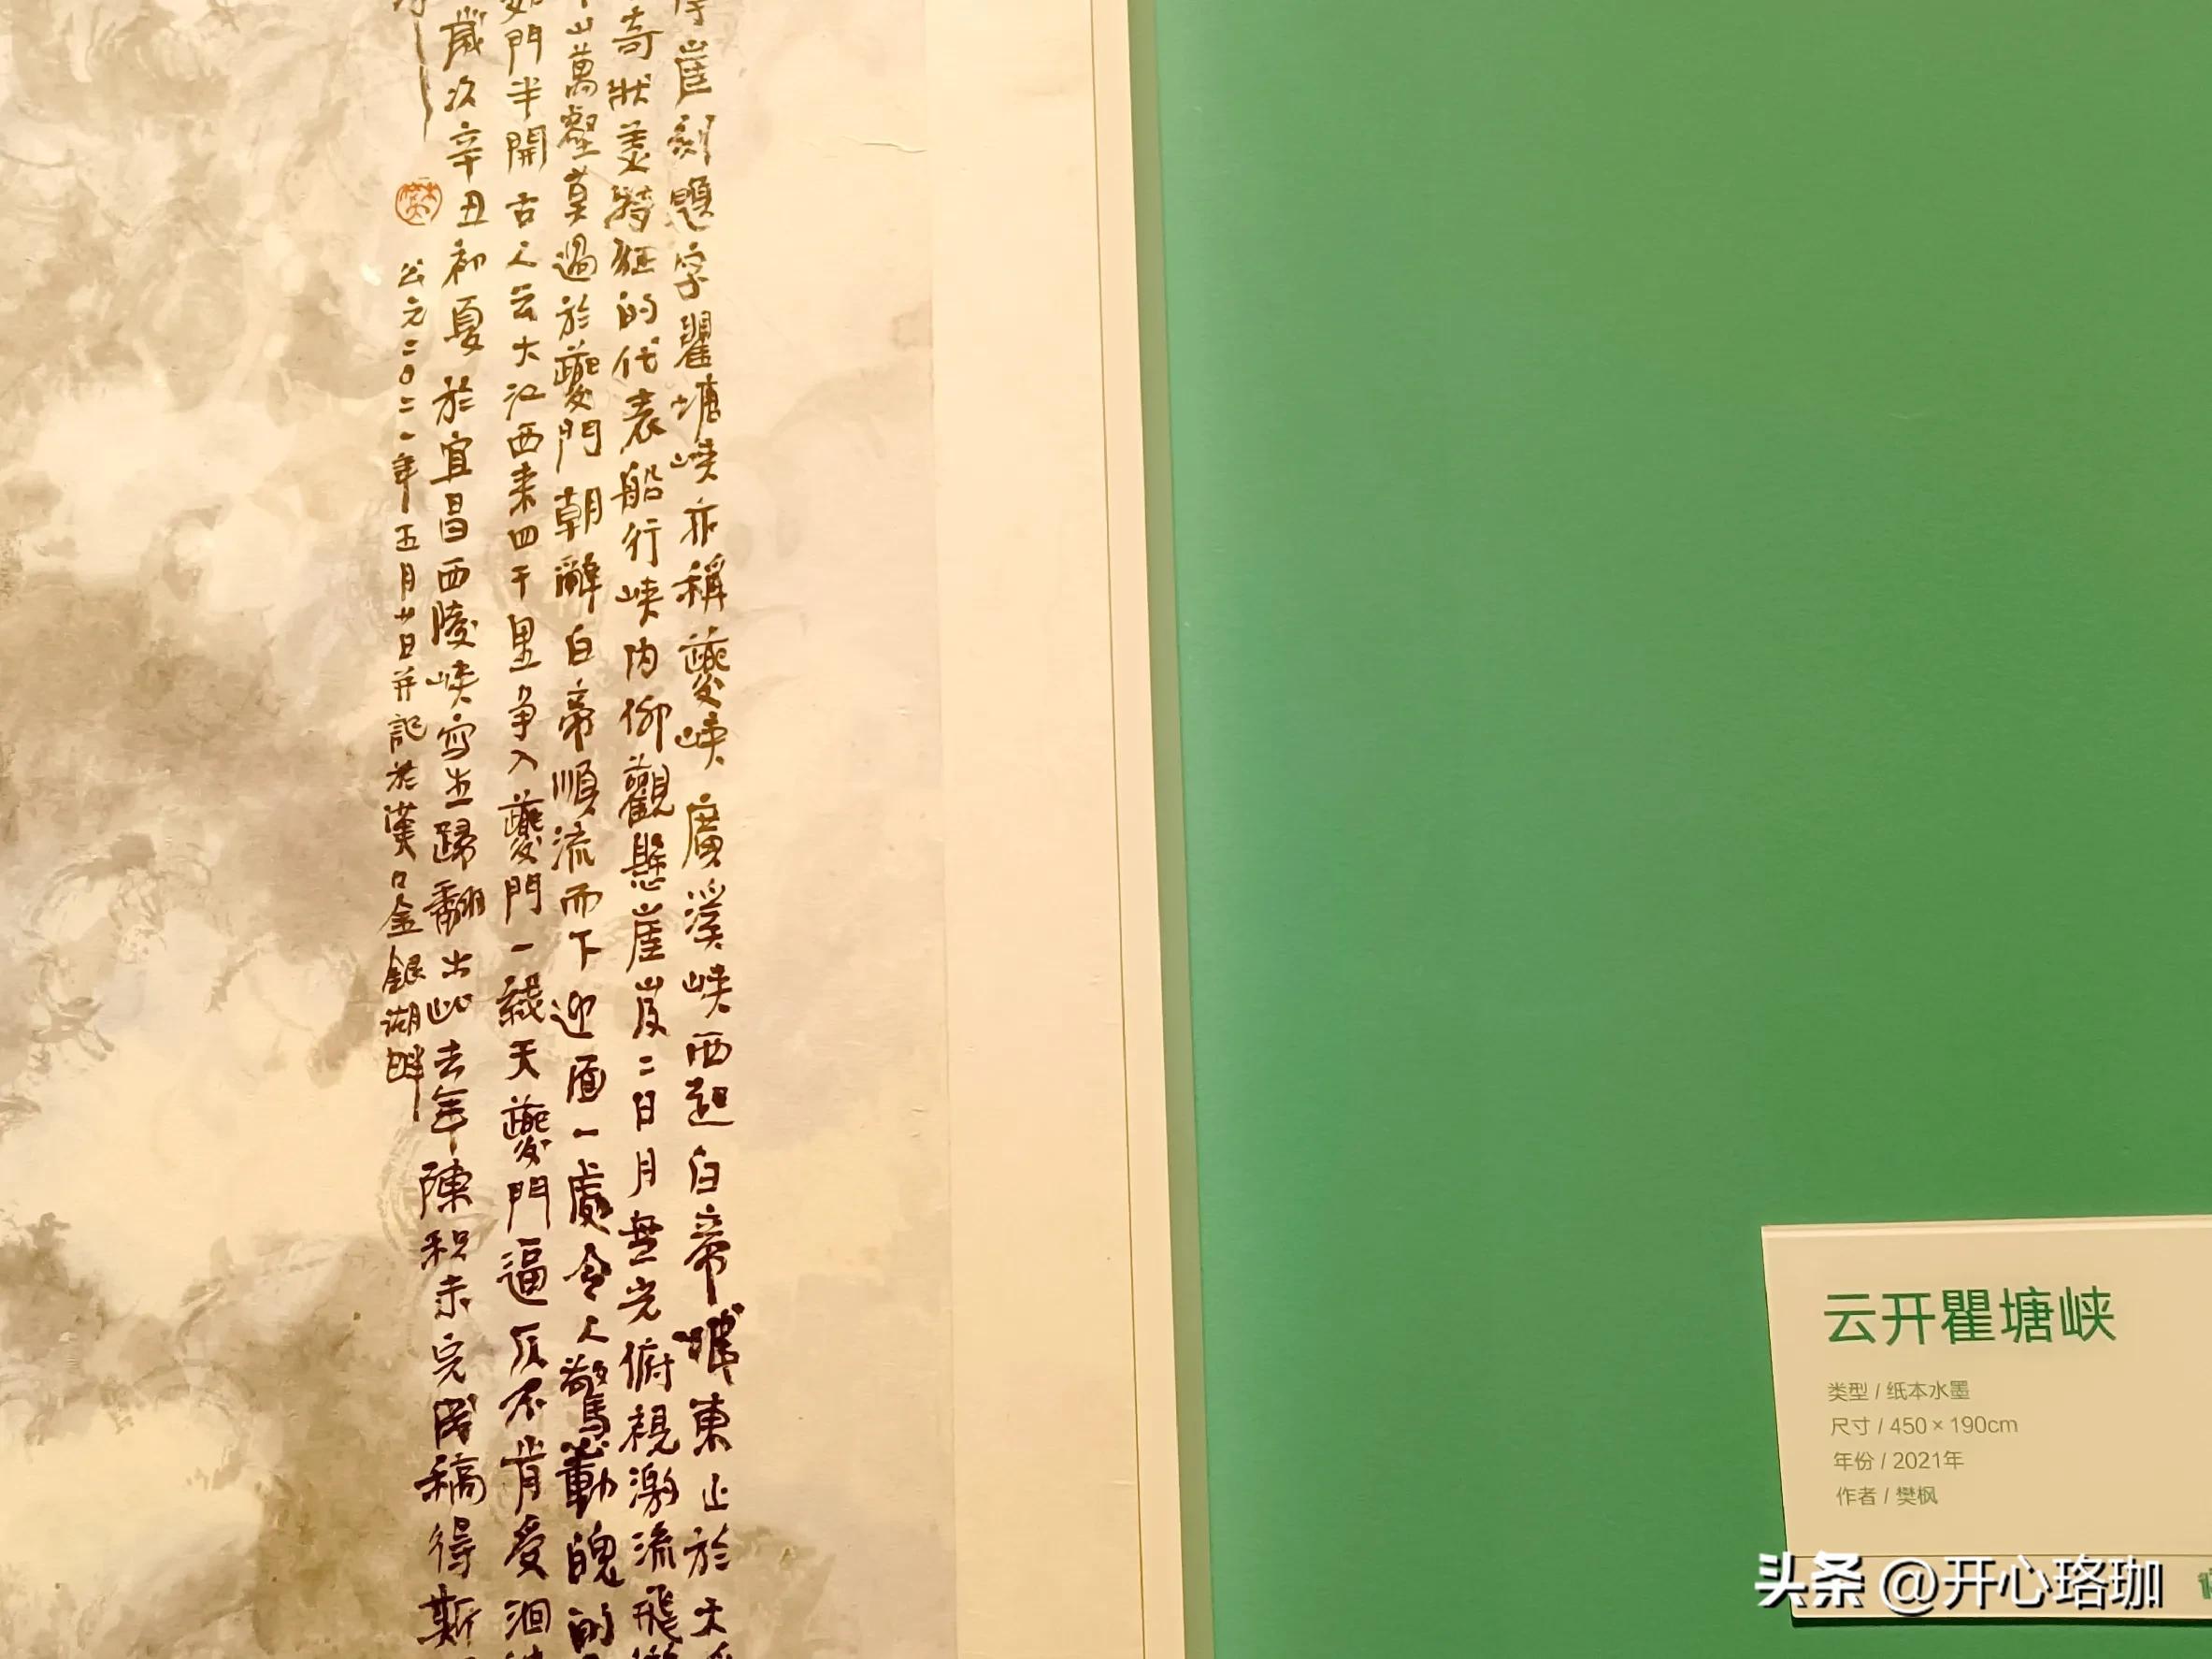 崖刻題字瞿塘峽亦稱夔峽廣溪峽西起白帝城東止於大
奇狀姜特征的代表船行峽内仰觀懸崖岌二日月無光俯視激流飛
山萬壑莫過於夔門朝辭白帝順流而下迎面一處令人驚動魄的
門半開古人云大江西來四千里争入夔門一綫天夔門逼仄不肯受洄
歲次辛丑初夏於宜昌西陵峽写生歸翻出此去年陳积未完成稿得斯
公元二〇二一年五月廿日并記於漢口金銀湖畔
云开瞿塘峡
类型 / 纸本水墨
尺寸 / 450 × 190cm
年份 / 2021年
作者 / 樊枫
头条 @开心珞珈